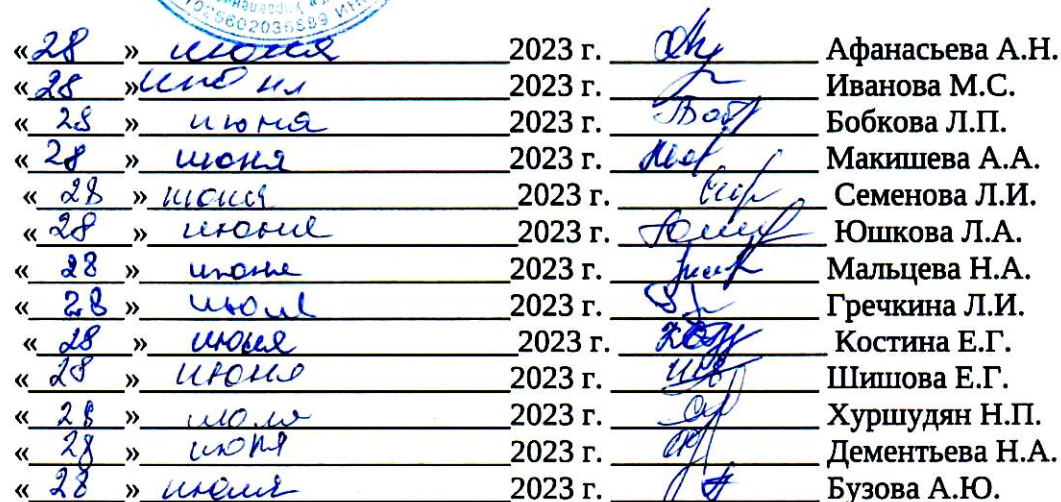 «28» июня 2023 г. Афанасьева А.Н.
«28» июня 2023 г. Иванова М.С.
«28» июня 2023 г. Бобкова Л.П.
«28» июня 2023 г. Макишева А.А.
«28» июня 2023 г. Семенова Л.И.
«28» июня 2023 г. Юшкова Л.А.
«28» июня 2023 г. Мальцева Н.А.
«28» 2023 г. Гречкина Л.И.
«28» июня 2023 г. Костина Е.Г.
«28» июня 2023 г. Шишова Е.Г.
«28» 2023 г. Хуршудян Н.П.
«28» июня 2023 г. Дементьева Н.А.
«28» 2023 г. Бузова А.Ю.